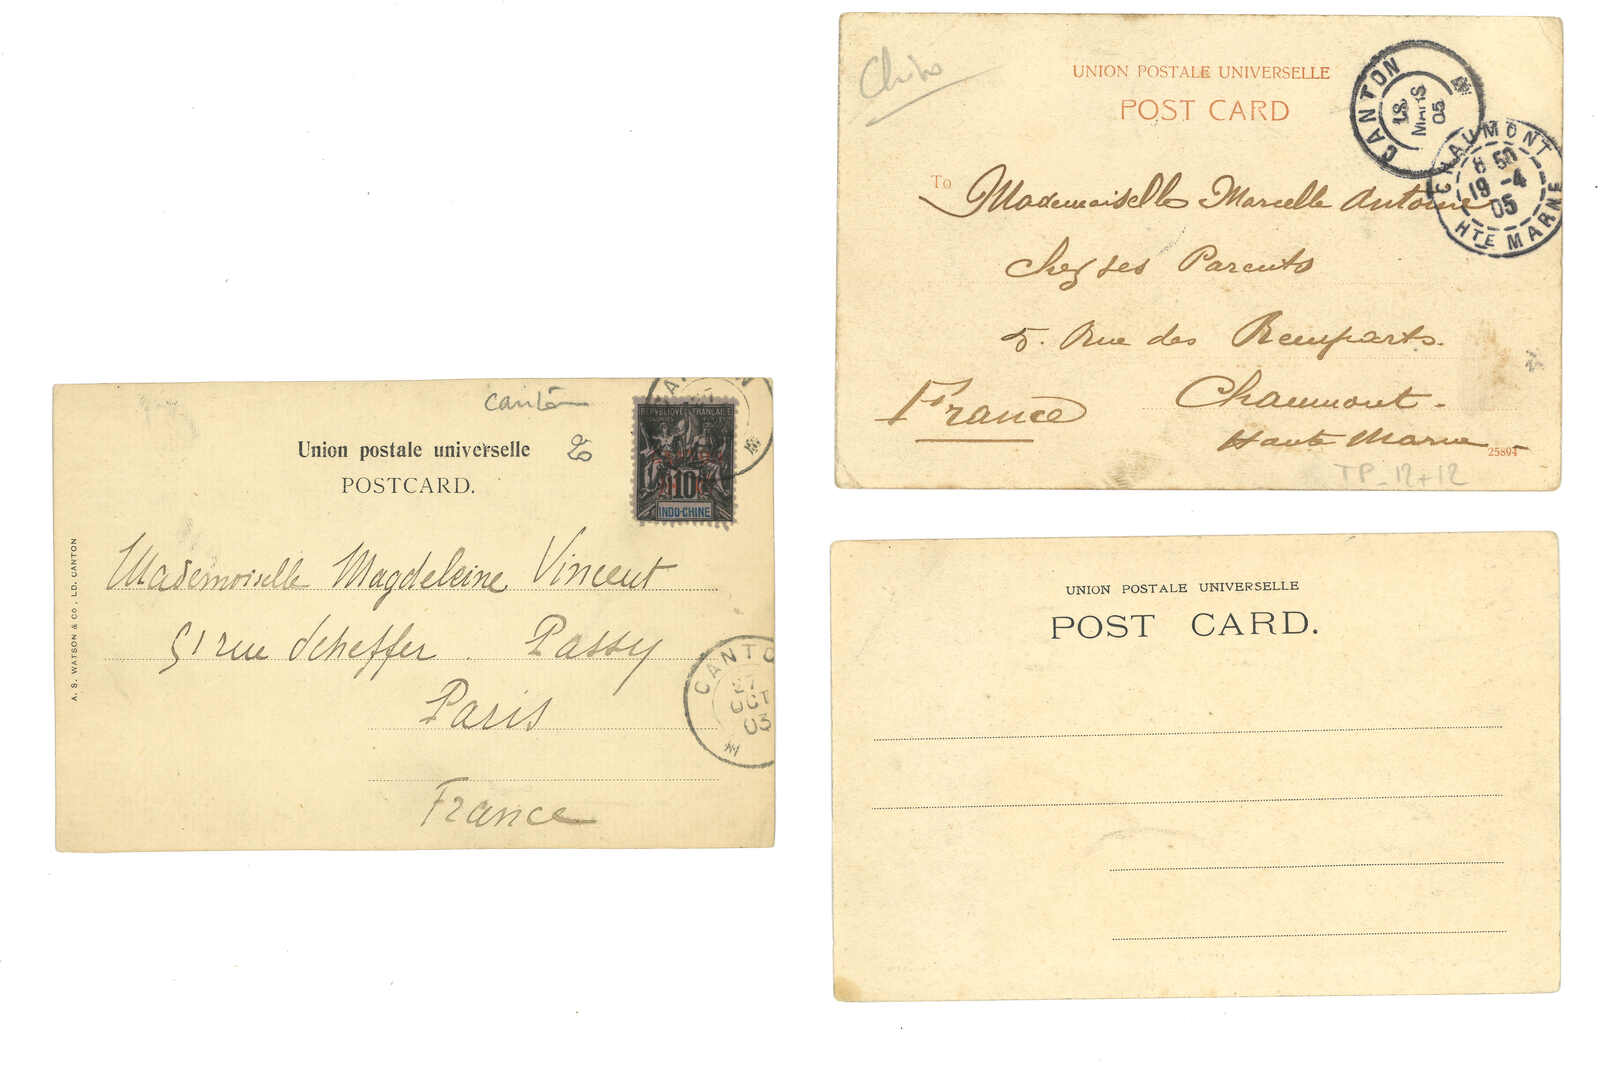 canton
Union postale universelle
POSTCARD.
REPUBLIQUE FRANCAISE
10
INDO-CHINE
A. S. WATSON & CO, LD. CANTON
Mademoiselle Magdeleine Vincent
51 rue Scheffer. Passy
Paris
France
CANTO
27
OCT
03
UNION POSTALE UNIVERSELLE
POST CARD
CANTON
MARS
05
CHAUMONT
8 50
19 -4
05
HTE MARNE
To Mademoiselle Marcelle Antoine
Chez ses Parents
5. Rue des Remparts.
Chaumont.
France
Haute Marne
25894
TP_12+12
UNION POSTALE UNIVERSELLE
POST CARD.